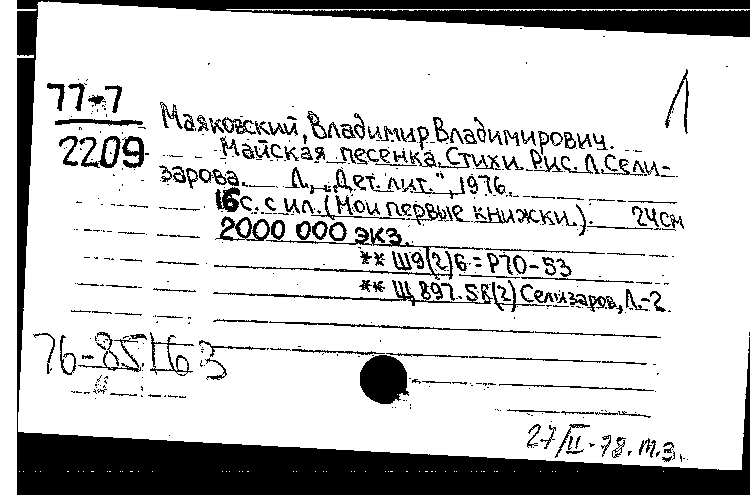 77-7
2209
Л
Маяковский, Владимир Владимирович.
Майская песенка. Стихи. Рис. Л. Сели-
зарова. Л., „Дет. лит.", 1976.
16 с. с ил. (Мои первые книжки.). 24 см
2000 000 экз.
** Ш9(2)6=Р70-53
** Щ,897.58(2) Селизаров, Л.-2
76-85163
27/II-78. т.з.